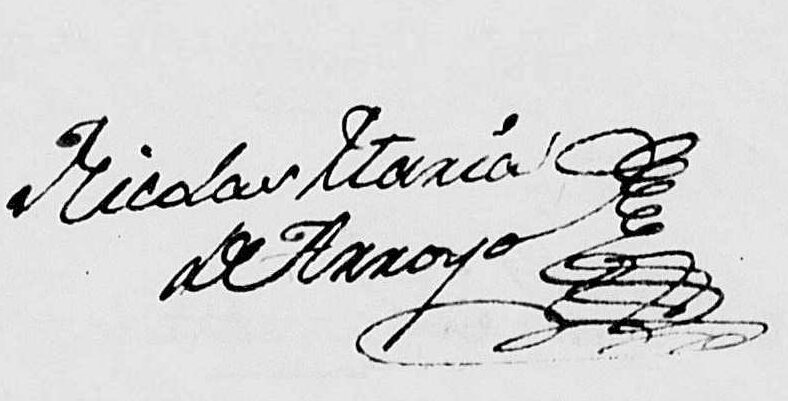 Nicolas Maria
de Arroyo